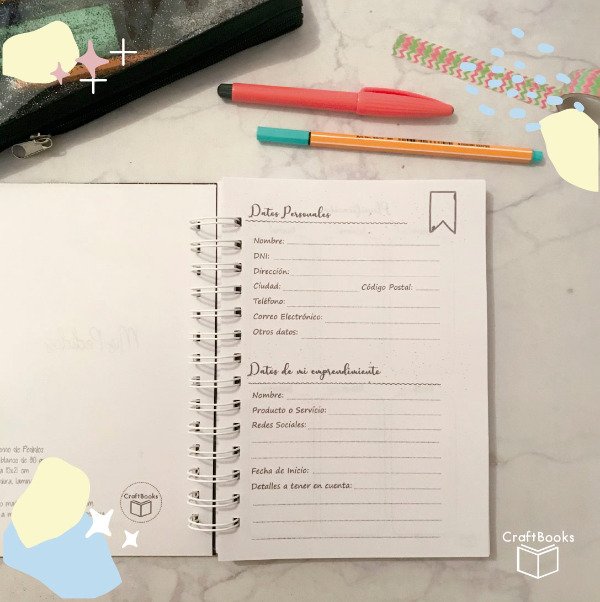 Datos Personales
Nombre:
DNI:
Dirección:
Ciudad: Código Postal:
Teléfono:
Correo Electrónico:
Otros datos:
Datos de mi emprendimiento
Nombre:
Producto o Servicio:
Redes Sociales:
Fecha de Inicio:
Detalles a tener en cuenta:
de Pedidos
15x21 cm
CraftBooks
CraftBooks